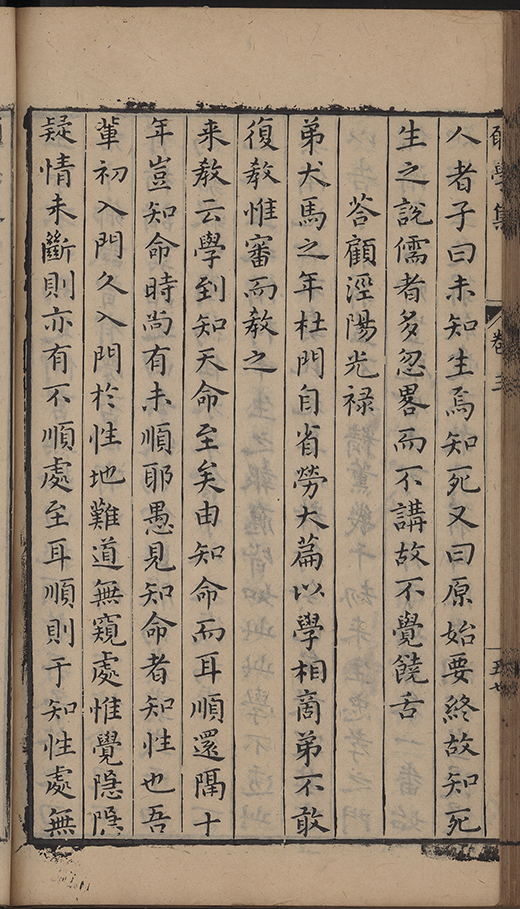 學集
卷三
人者子曰未知生焉知死又曰原始要終故知死
生之說儒者多忽畧而不講故不覺饒舌
荅顧涇陽光禄
弟犬馬之年杜門自省勞大篇以學相啇弟不敢
復教惟審而教之
来教云學到知天命至矣由知命而耳順還隔十
年豈知命時尚有未順耶愚見知命者知性也吾
輩初入門久入門於性地難道無窺處惟覺隠隠
疑情未斷則亦有不順處至耳順則于知性處無